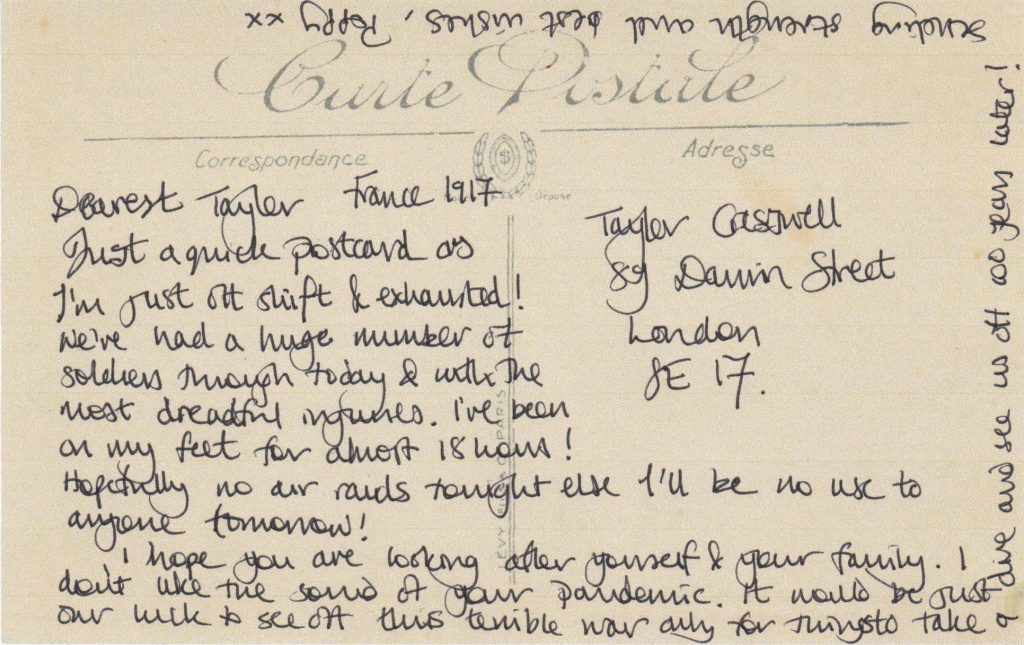 Carte Postale
Correspondance
Adresse
Dearest Tayler France 1917
Just a quick postcard as
I'm just off shift & exhausted!
We've had a huge number of
soldiers through today & with the
most dreadful injuries. I've been
on my feet for almost 18 hours!
Hopefully no air raids tonight else I'll be no use to
anyone tomorrow!
I hope you are looking after yourself & your family. I
don't like the sound of your pandemic. It would be just
our luck to see off this terrible war only for things to take
a dive and see us off 100 years later!
Sending strength and best wishes, Poppy xx
Tayler Casswell
89 Darwin Street
London
SE 17.
LEVY FILS PARIS